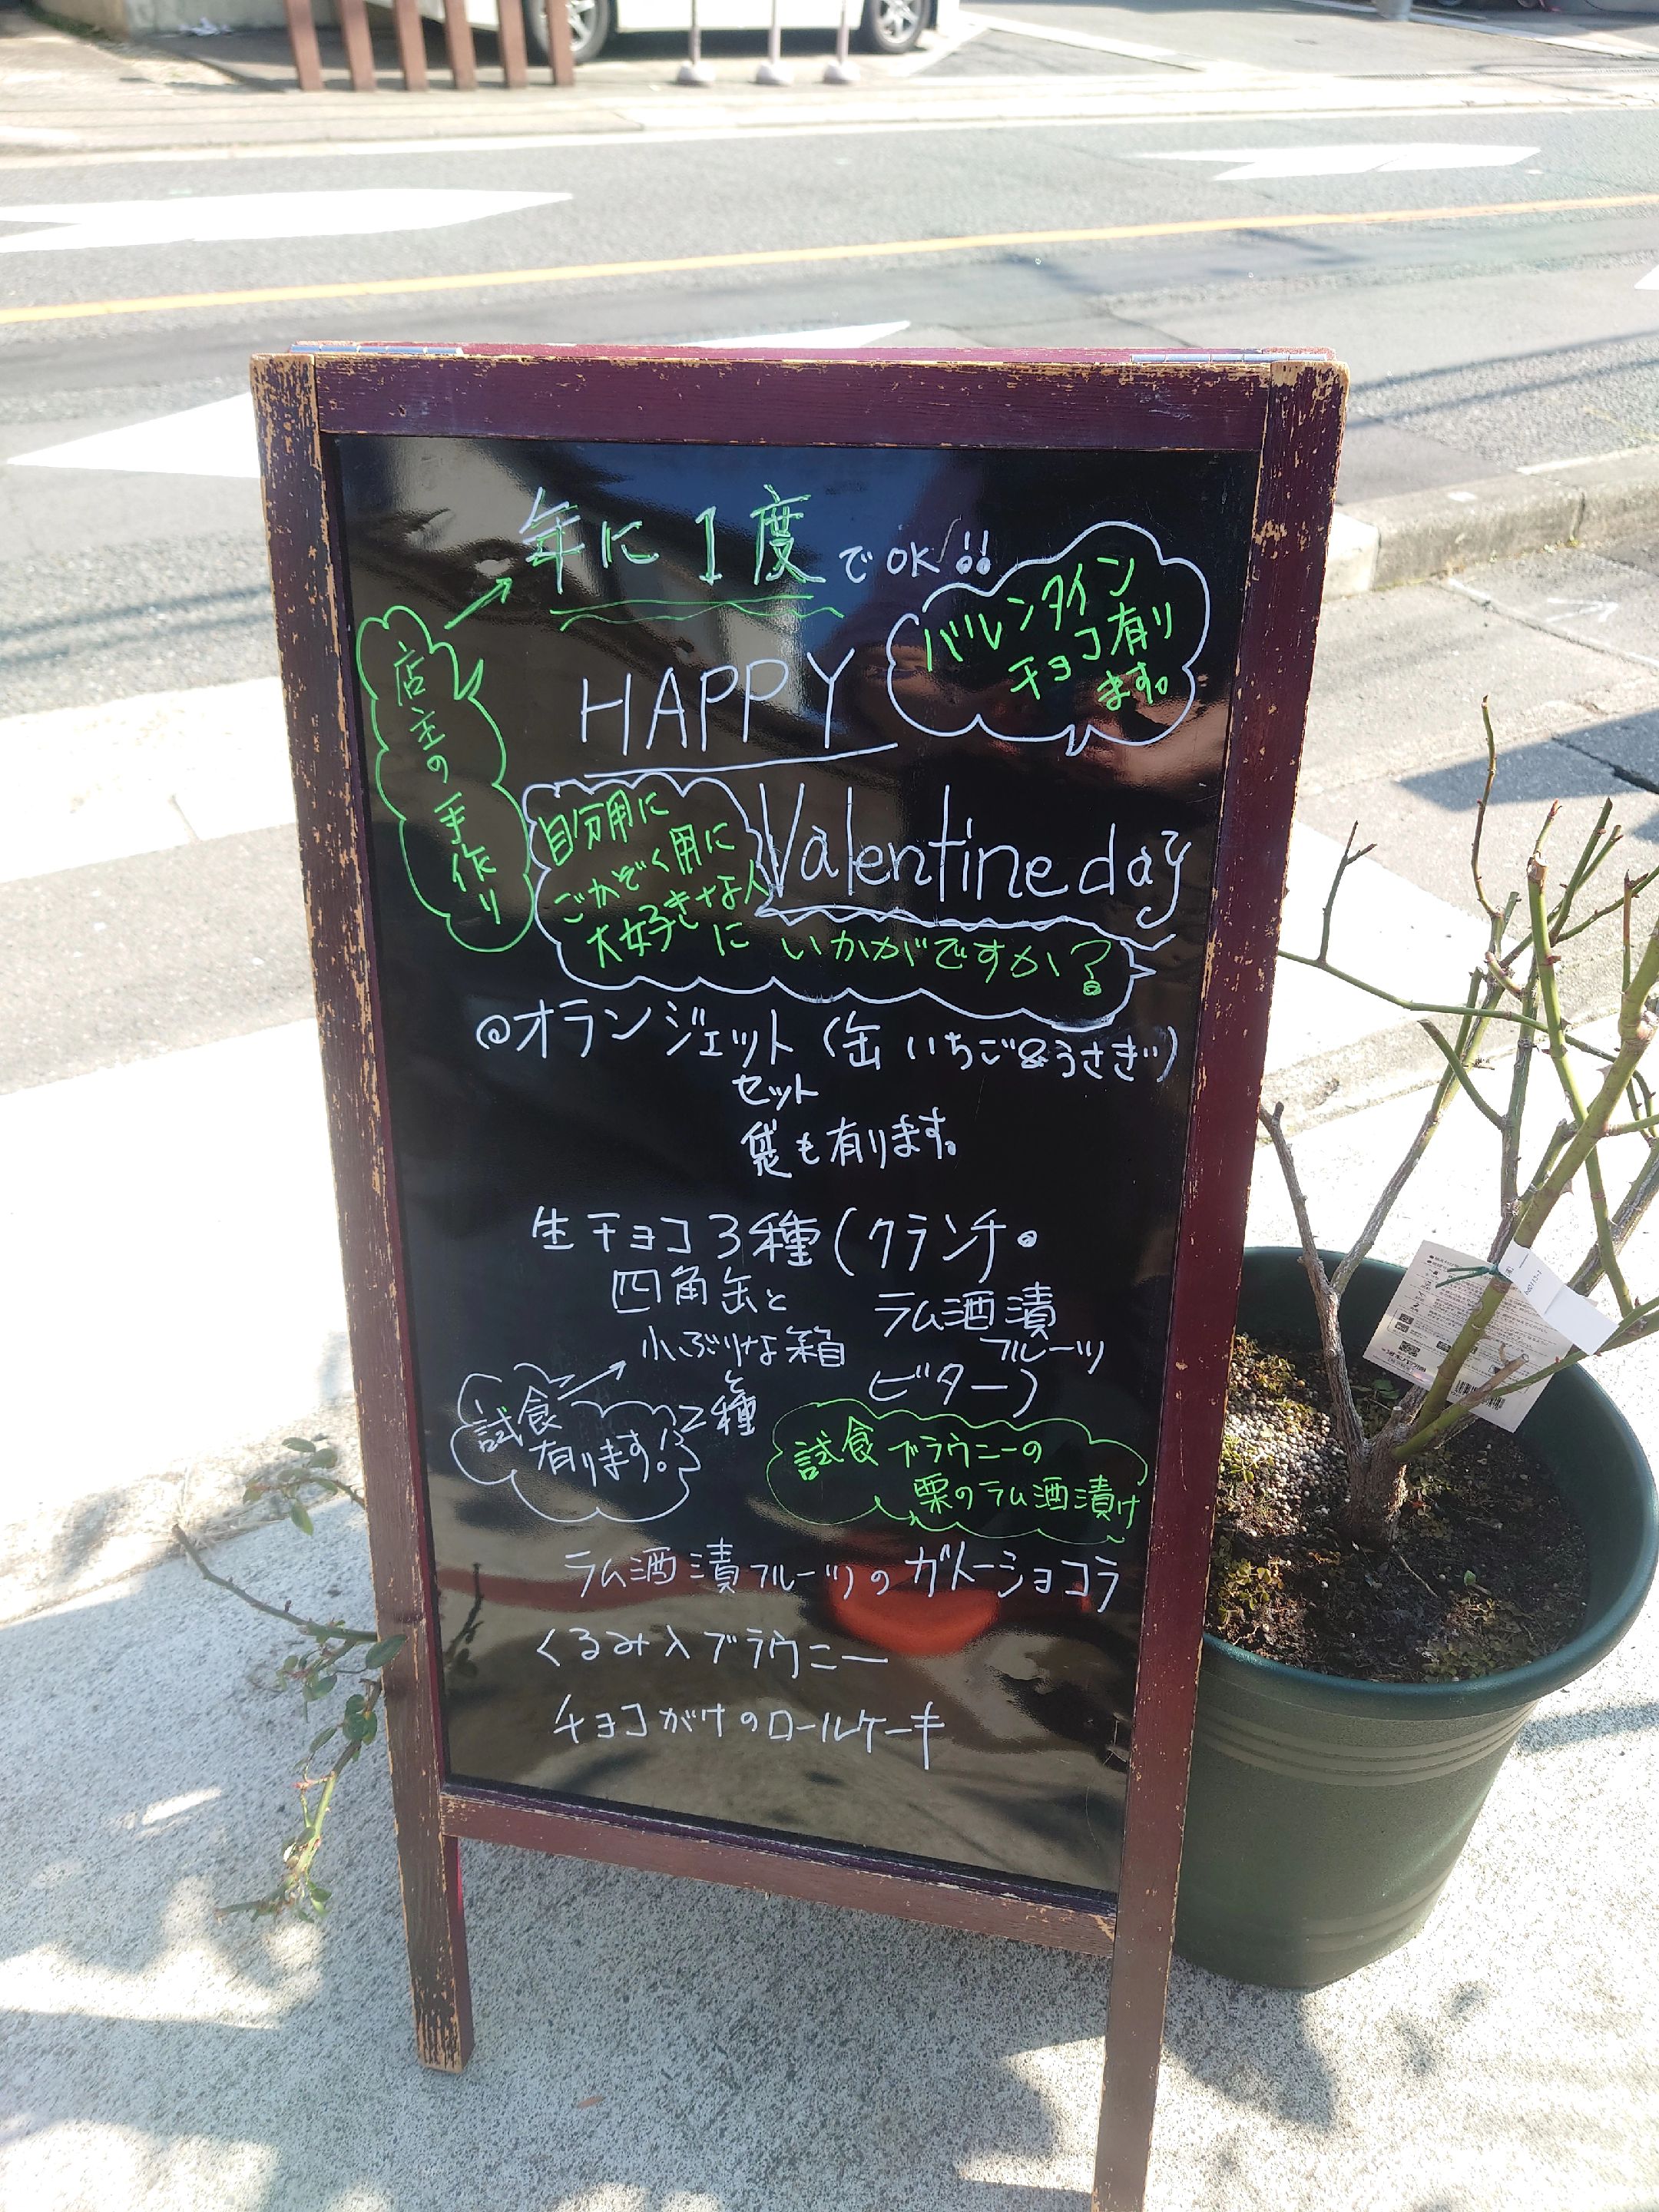 年に1度でOK!!
店主の手作り
バレンタイン
チョコ有り
ます。
HAPPY
Valentine day
自分用に
ごかぞく用に
大好きな人
に いかがですか?
@オランジェット (缶 いちご&うさぎ)
セット
袋も有ります。
生チョコ3種(クランチ・
四角缶と
ラム酒漬
フルーツ
小ぶりな箱
ビター)
と
2種
試食
有ります!
試食 ブラウニーの
栗のラム酒漬け
ラム酒漬フルーツのガトーショコラ
くるみ入ブラウニー
チョコがけのロールケーキ